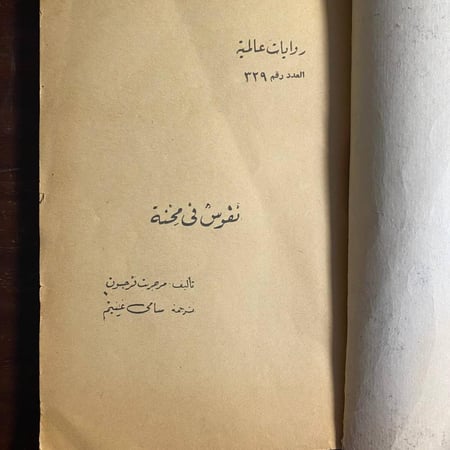 روايات عالمية
العدد رقم ٣٢٩
نفوسٌ في محنة
تأليف مرجريت فرجسون
ترجمة سامى غنيم